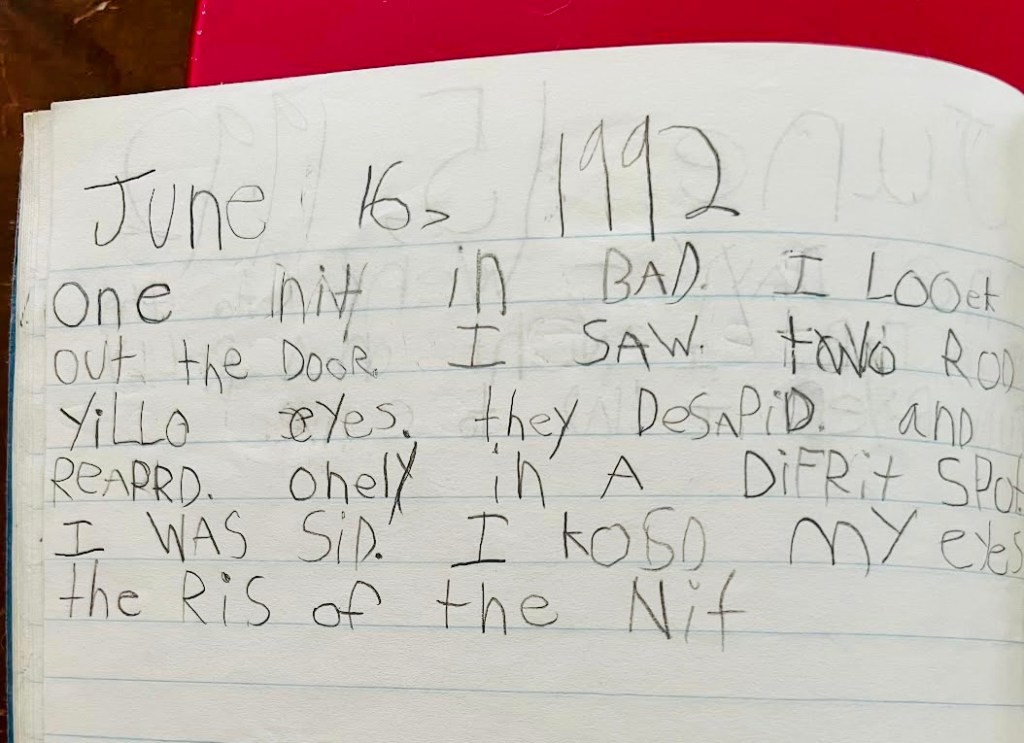 June 16, 1992
one nit in BAD. I LOOet
out the DooR. I SAW. two ROD
YiLLo eyes. they DeSAPiD. and
REAPRD. onely in A DiFRit SPot.
I WAS SiD. I koSD MY eyes
the RiS of the Nit